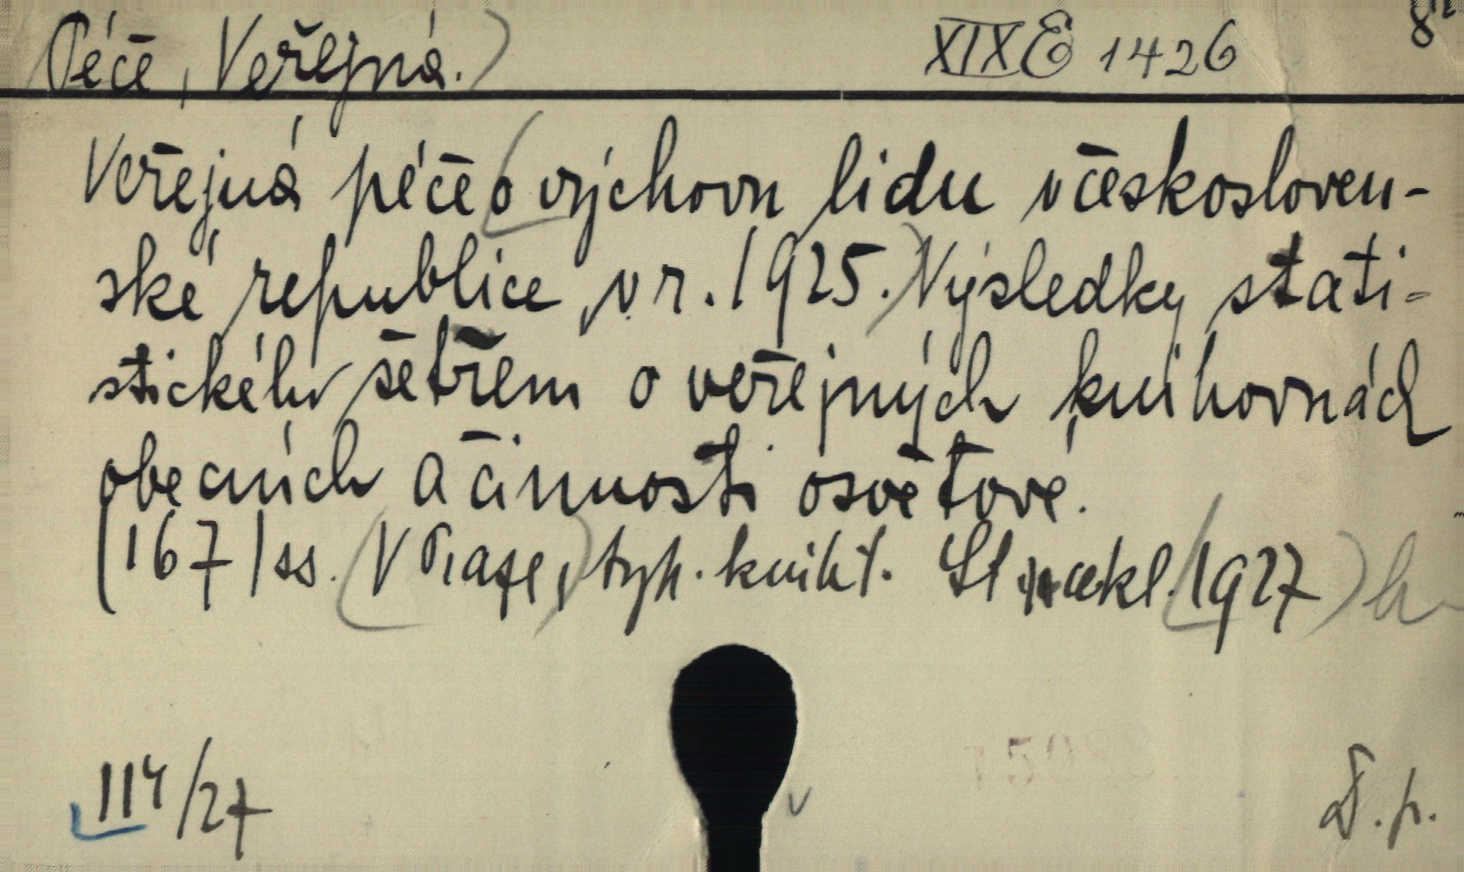 Péče, Veřejná.) XIX E 1426 8°
Veřejná péče o výchovu lidu v českosloven-
ské republice v r. 1925. Výsledky stati-
stického šetření o veřejných knihovnách
obecních a činnosti osvětové.
(167) ss. V Praze, typ. kniht. 1927
114/27 D. p.